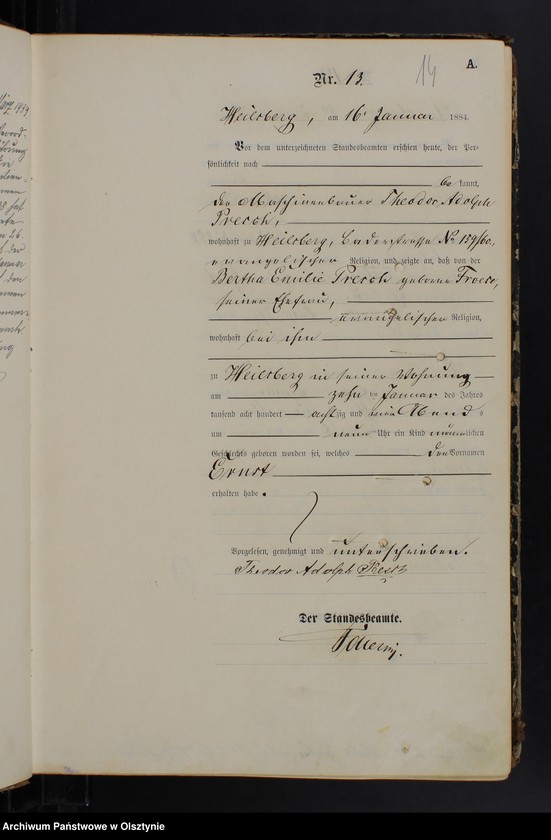 14
A.
Nr. 13.
Heilsberg, am 16 Januar 1884.
Vor dem unterzeichneten Standesbeamten erschien heute, der Per-
sönlichkeit nach
be kannt,
der Maschinenbauer Theodor Adolph
Presch,
wohnhaft zu Heilsberg, Baderstrasse No 159/60,
evangelischer Religion, und zeigte an, daß von der
Bertha Emilie Presch geborene
seiner Ehefrau,
evangelischer Religion,
wohnhaft bei ihm
zu Heilsberg in seiner Wohnung
am zehn ten Januar des Jahres
tausend acht hundert achtzig und vier Abends
um neun Uhr ein Kind männlichen
Geschlechts geboren worden sei, welches den Vornamen
Ernst
erhalten habe.
Vorgelesen, genehmigt und unterschrieben.
Theodor Adolph
Der Standesbeamte.
Archiwum Państwowe w Olsztynie